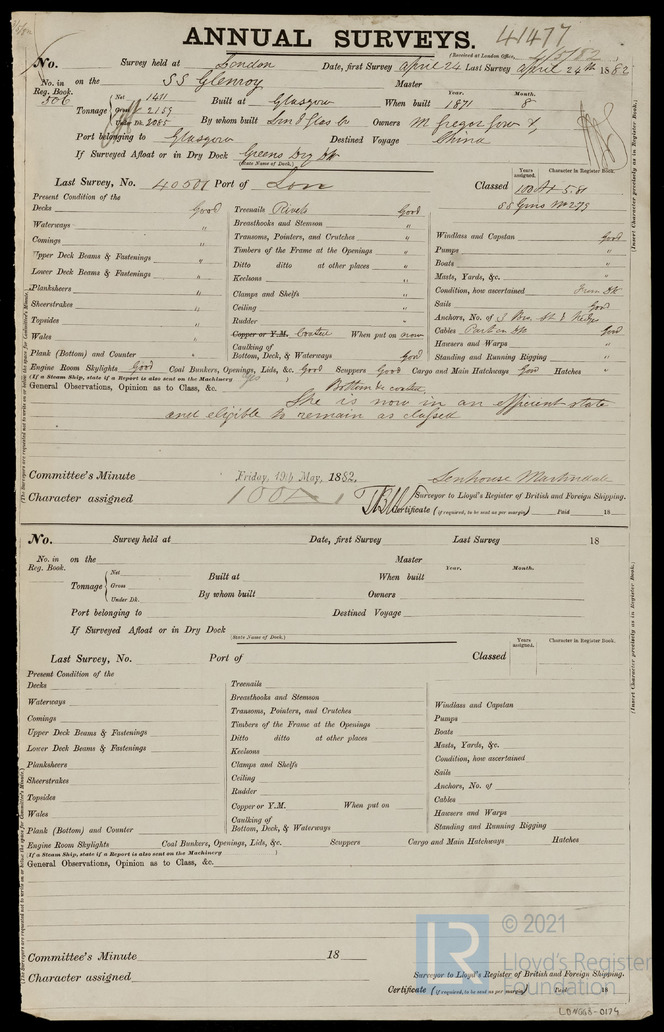 ANNUAL SURVEYS. 41477
(Received at London Office, 2/5/82)
No. Survey held at London Date, first Survey April 24 Last Survey April 24th 1882
No. in Reg. Book. 506 on the SS Glenroy Master
Tonnage Net 1411 Gross 2159 Under Dk. 2085 Built at Glasgow When built Year. 1871 Month. 8
By whom built Lon & Glas Co Owners McGregor Gow &
Port belonging to Glasgow Destined Voyage China
If Surveyed Afloat or in Dry Dock Greens Dry Dk
(State Name of Dock.)
Last Survey, No. 40507 Port of Lon Classed Years assigned. 100A1 Character in Register Book. 5.81
Present Condition of the
Decks Good Treenails Rivets Good
Waterways " Breasthooks and Stemson " Windlass and Capstan Good
Comings " Transoms, Pointers, and Crutches " Pumps "
Upper Deck Beams & Fastenings " Timbers of the Frame at the Openings " Boats "
Lower Deck Beams & Fastenings " Ditto ditto at other places " Masts, Yards, &c. "
Keelsons " Condition, how ascertained From Dk
Planksheers " Clamps and Shelfs " Sails Good
Sheerstrakes " Ceiling " Anchors, No. of
Topsides " Rudder " Cables Part on Dk Good
Wales " Copper or Y.M. Coated When put on now Hawsers and Warps "
Plank (Bottom) and Counter " Caulking of Bottom, Deck, & Waterways Good Standing and Running Rigging "
Engine Room Skylights Good Coal Bunkers, Openings, Lids, &c. Good Scuppers Good Cargo and Main Hatchways Good Hatches "
(If a Steam Ship, state if a Report is also sent on the Machinery Yes )
General Observations, Opinion as to Class, &c. Bottom re coated.
She is now in an efficient state
and eligible to remain as classed
Committee's Minute Friday, 19th May, 1882. Senhouse Martindale
Character assigned 100A1 Surveyor to Lloyd's Register of British and Foreign Shipping.
Certificate (if required, to be sent as per margin) Paid 18
(The Surveyors are requested not to write on or below the space for Committee's Minute.)
(Insert Character precisely as in Register Book.)
No. Survey held at Date, first Survey Last Survey 18
No. in Reg. Book. on the Master
Tonnage Net Gross Under Dk. Built at When built Year. Month.
By whom built Owners
Port belonging to Destined Voyage
If Surveyed Afloat or in Dry Dock
(State Name of Dock.)
Last Survey, No. Port of Classed Years assigned. Character in Register Book.
Present Condition of the
Decks Treenails
Waterways Breasthooks and Stemson Windlass and Capstan
Comings Transoms, Pointers, and Crutches Pumps
Upper Deck Beams & Fastenings Timbers of the Frame at the Openings Boats
Lower Deck Beams & Fastenings Ditto ditto at other places Masts, Yards, &c.
Keelsons Condition, how ascertained
Planksheers Clamps and Shelfs Sails
Sheerstrakes Ceiling Anchors, No. of
Topsides Rudder Cables
Wales Copper or Y.M. When put on Hawsers and Warps
Plank (Bottom) and Counter Caulking of Bottom, Deck, & Waterways Standing and Running Rigging
Engine Room Skylights Coal Bunkers, Openings, Lids, &c. Scuppers Cargo and Main Hatchways Hatches
(If a Steam Ship, state if a Report is also sent on the Machinery )
General Observations, Opinion as to Class, &c.
Committee's Minute 18
Character assigned Surveyor to Lloyd's Register of British and Foreign Shipping.
Certificate (if required, to be sent as per margin) Paid 18
(The Surveyors are requested not to write on or below the space for Committee's Minute.)
(Insert Character precisely as in Register Book.)
© 2021
LR
Lloyd's Register
Foundation
LON668-0174